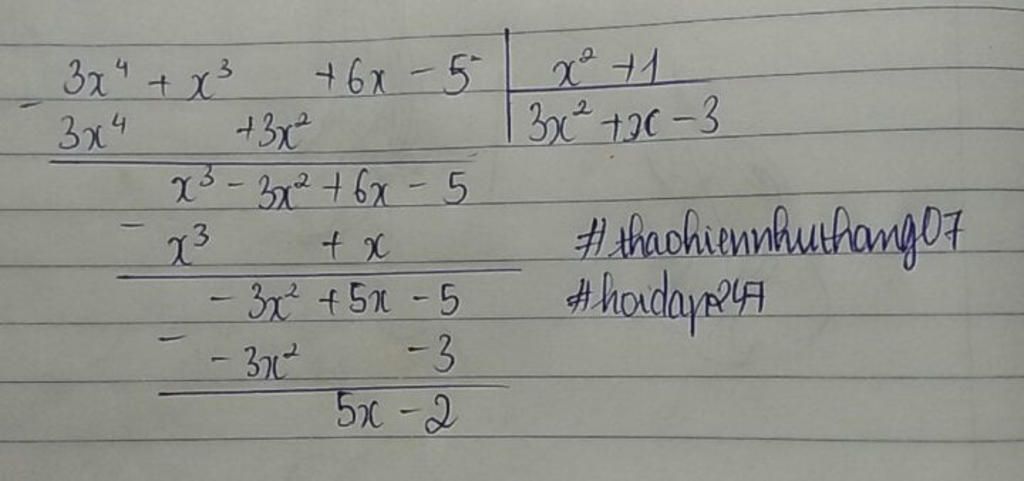 3x⁴ + x³ + 6x - 5 | x² + 1
- 3x⁴ + 3x² | 3x² + x - 3
x³ - 3x² + 6x - 5
- x³ + x
- 3x² + 5x - 5
- - 3x² - 3
5x - 2
#thaohiennhuthang07
#hoidap247